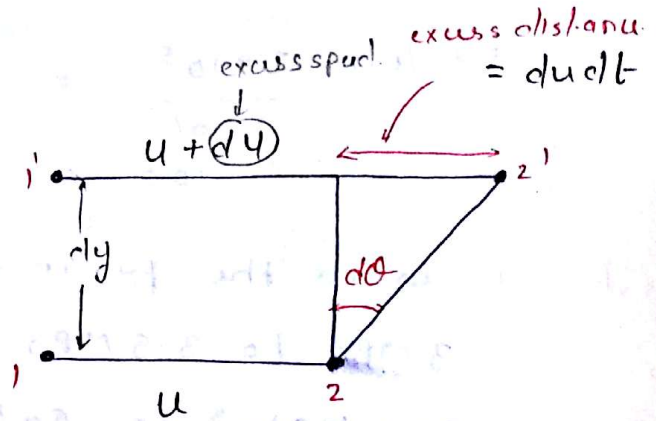 excess distance
= du dt
excess speed
u + du
1'
2'
dy
dθ
1
2
u